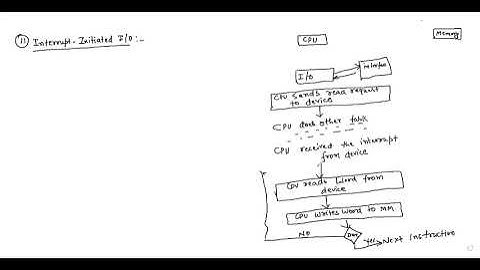 (11) Interrupt-Initiated I/O:-
CPU
Memory
I/O
CPU sends read request
to device
CPU does other task
CPU received the interrupt
from device
CPU reads word from
device
CPU writes word to MM
NO
Yes
Next instructive